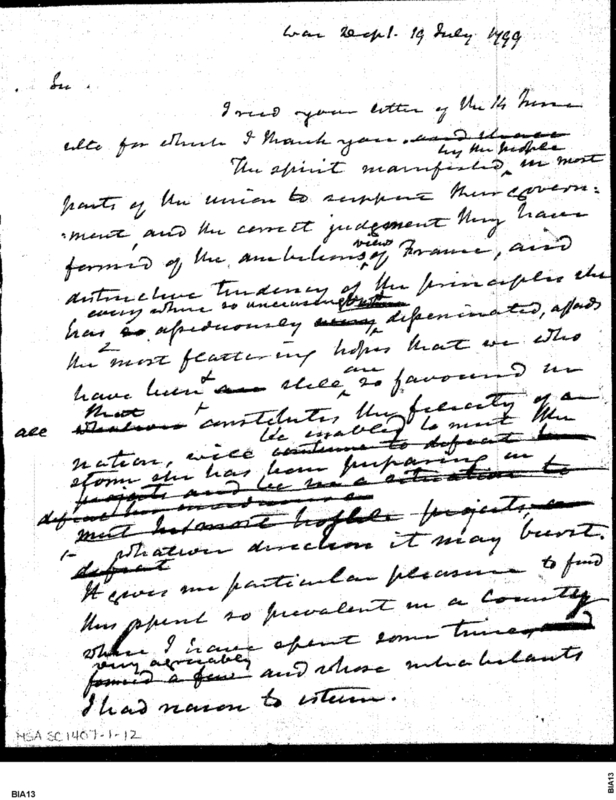 War Dept. 19 July 1799
Sir.
I recd your letter of the 14 June
ulto for which I thank you. and
by the people
The spirit manifested in most
parts of the union to support their govern-
-ment, and the correct judgment they have
views
formed of the ambitious of France, and
destructive tendency of the principles she
every where so unceasingly
has so assiduously disseminated, affords
the most flattering hopes that we who
are
have been & still so favoured in
that
all whatever constitutes the felicity of a
be enabled to meet the
nation, will continue to defeat
storm she has been preparing in
projects and be in a situation to
defeat her
meet her most hostile projects
whatever direction it may burst.
defeat
It gives me particular pleasure to find
this spirit so prevalent in a country
where I have spent some time
very agreeably
formed a few and whose inhabitants
I had reason to esteem.
MSA SC1407-1-12
BIA13
BIA13